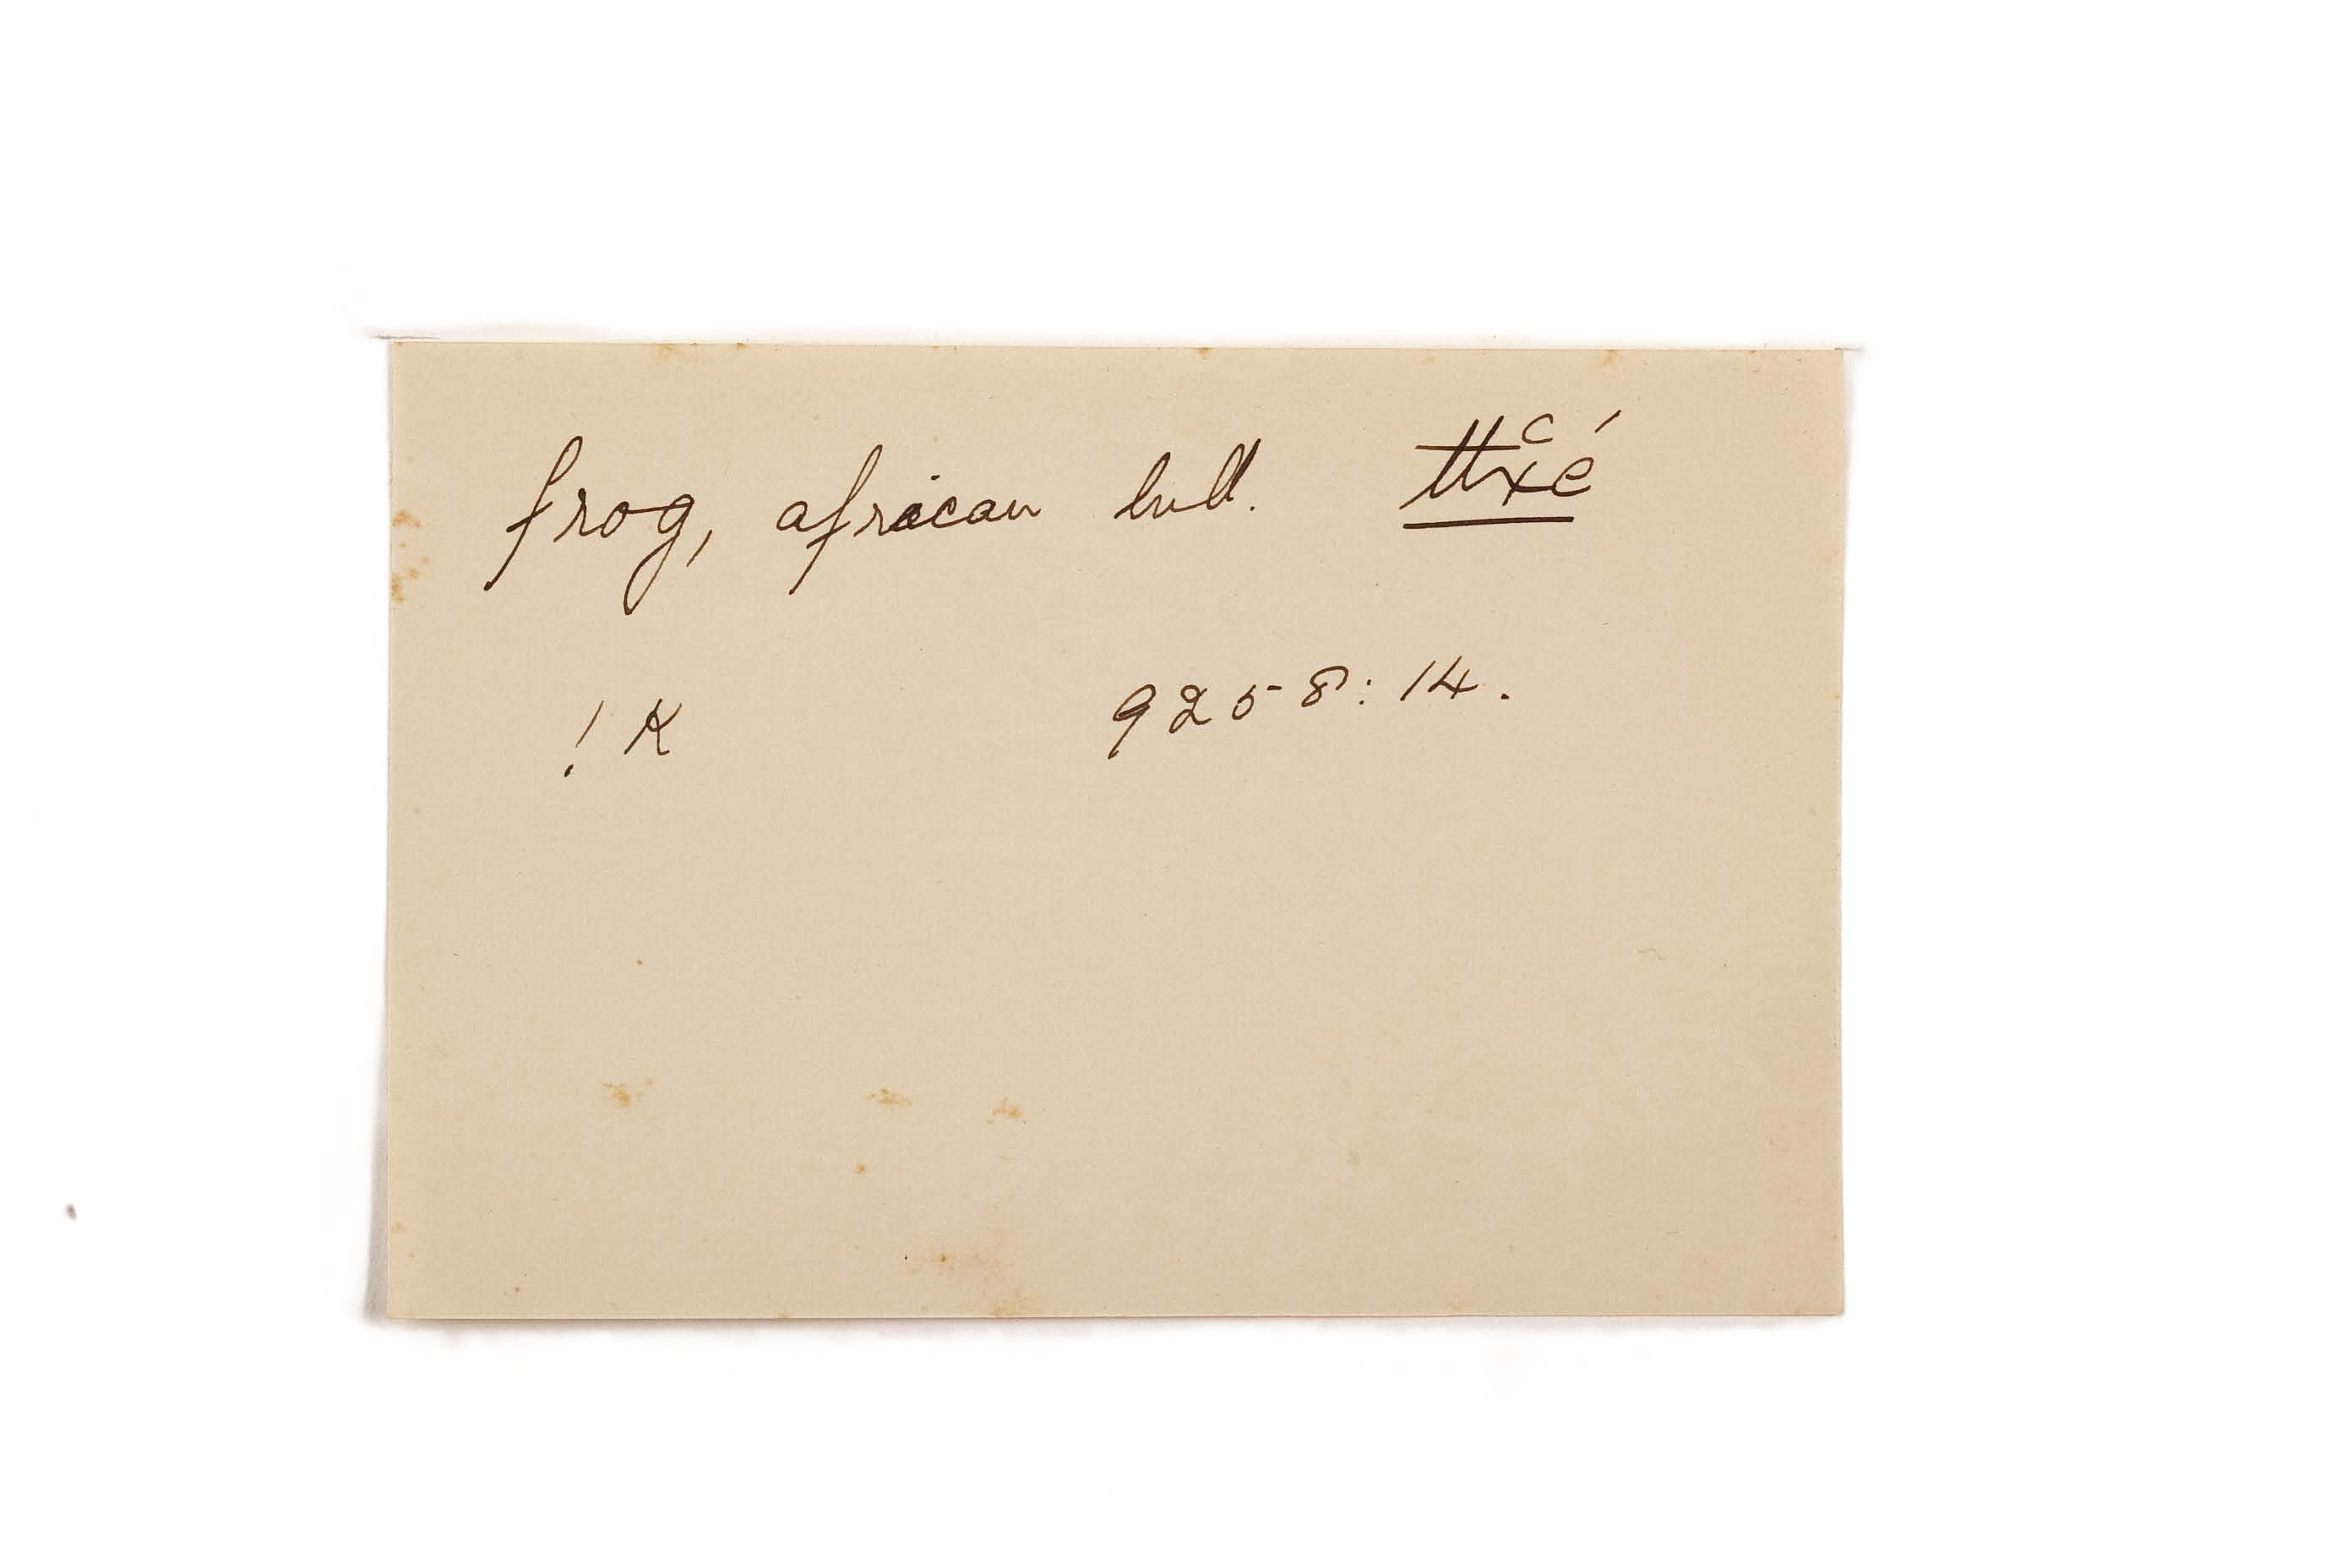 frog, african bull. ttxʿé
! K 9258:14.